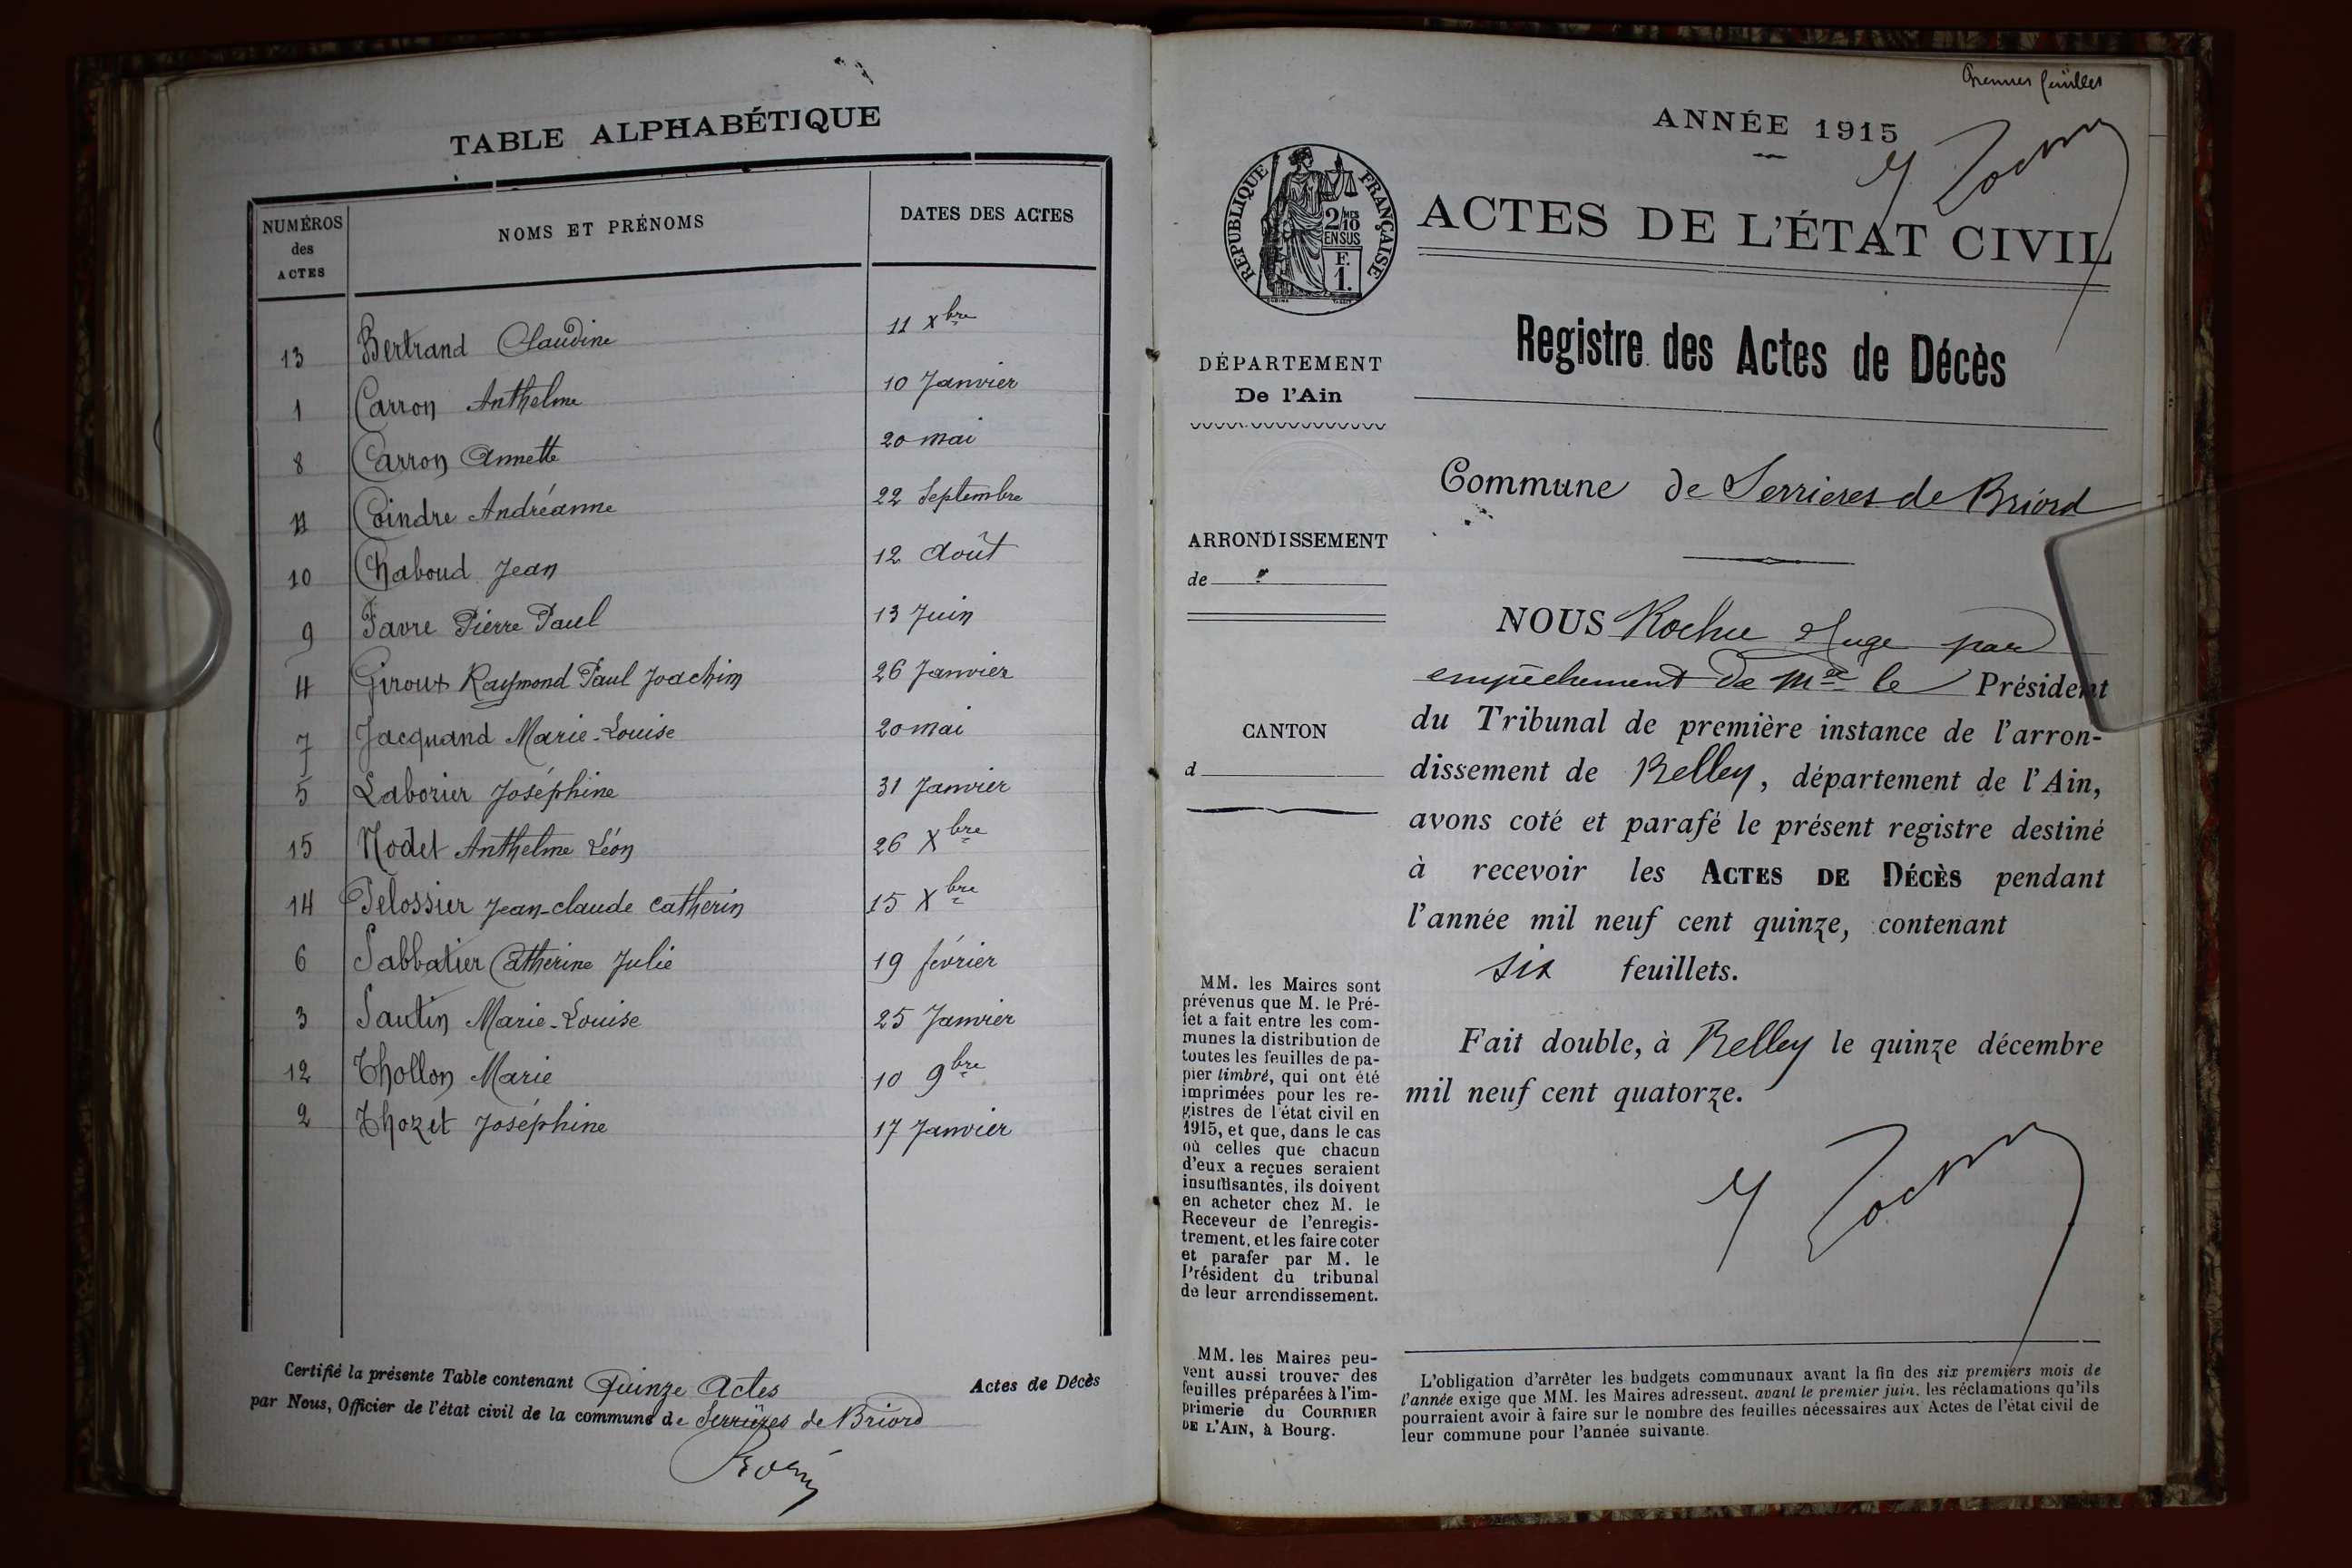 TABLE ALPHABÉTIQUE
NUMÉROS des ACTES NOMS ET PRÉNOMS DATES DES ACTES
13 Bertrand Claudine 11 Xbre
1 Carron Anthelme 10 Janvier
8 Carron Annette 20 mai
11 Coindre Andréanne 22 Septembre
10 Chaboud Jean 12 Août
9 Favre Pierre Paul 13 Juin
4 Giroux Raymond Paul Joachim 26 Janvier
7 Jacquand Marie-Louise 20 mai
5 Laborier Joséphine 31 Janvier
15 Nodet Anthelme Léon 26 Xbre
14 Pelossier Jean-claude Catherin 15 Xbre
6 Sabbatier Catherine Julie 19 février
3 Sautin Marie-Louise 25 Janvier
12 Thollon Marie 10 9bre
2 Thozet Joséphine 17 Janvier
Certifié la présente Table contenant Quinze Actes Actes de Décès
par Nous, Officier de l'état civil de la commune de Serrières de Briord
ANNÉE 1915
RÉPUBLIQUE FRANÇAISE
2/10MES
EN SUS
F.
1.
ACTES DE L'ÉTAT CIVIL
Registre des Actes de Décès
DÉPARTEMENT
De l'Ain
Commune de Serrieres de Briord
ARRONDISSEMENT
de
CANTON
d
NOUS Juge par
empêchement de Mr le Président
du Tribunal de première instance de l'arron-
dissement de Belley, département de l'Ain,
avons coté et parafé le présent registre destiné
à recevoir les ACTES DE DÉCÈS pendant
l'année mil neuf cent quinze, contenant
six feuillets.
Fait double, à Belley le quinze décembre
mil neuf cent quatorze.
MM. les Maires sont
prévenus que M. le Pré-
fet a fait entre les com-
munes la distribution de
toutes les feuilles de pa-
pier timbré, qui ont été
imprimées pour les re-
gistres de l'état civil en
1915, et que, dans le cas
où celles que chacun
d'eux a reçues seraient
insuffisantes, ils doivent
en acheter chez M. le
Receveur de l'enregis-
trement, et les faire coter
et parafer par M. le
Président du tribunal
de leur arrondissement.
MM. les Maires peu-
vent aussi trouver des
feuilles préparées à l'im-
primerie du COURRIER
DE L'AIN, à Bourg.
L'obligation d'arrêter les budgets communaux avant la fin des six premiers mois de
l'année exige que MM. les Maires adressent, avant le premier juin, les réclamations qu'ils
pourraient avoir à faire sur le nombre des feuilles nécessaires aux Actes de l'état civil de
leur commune pour l'année suivante.